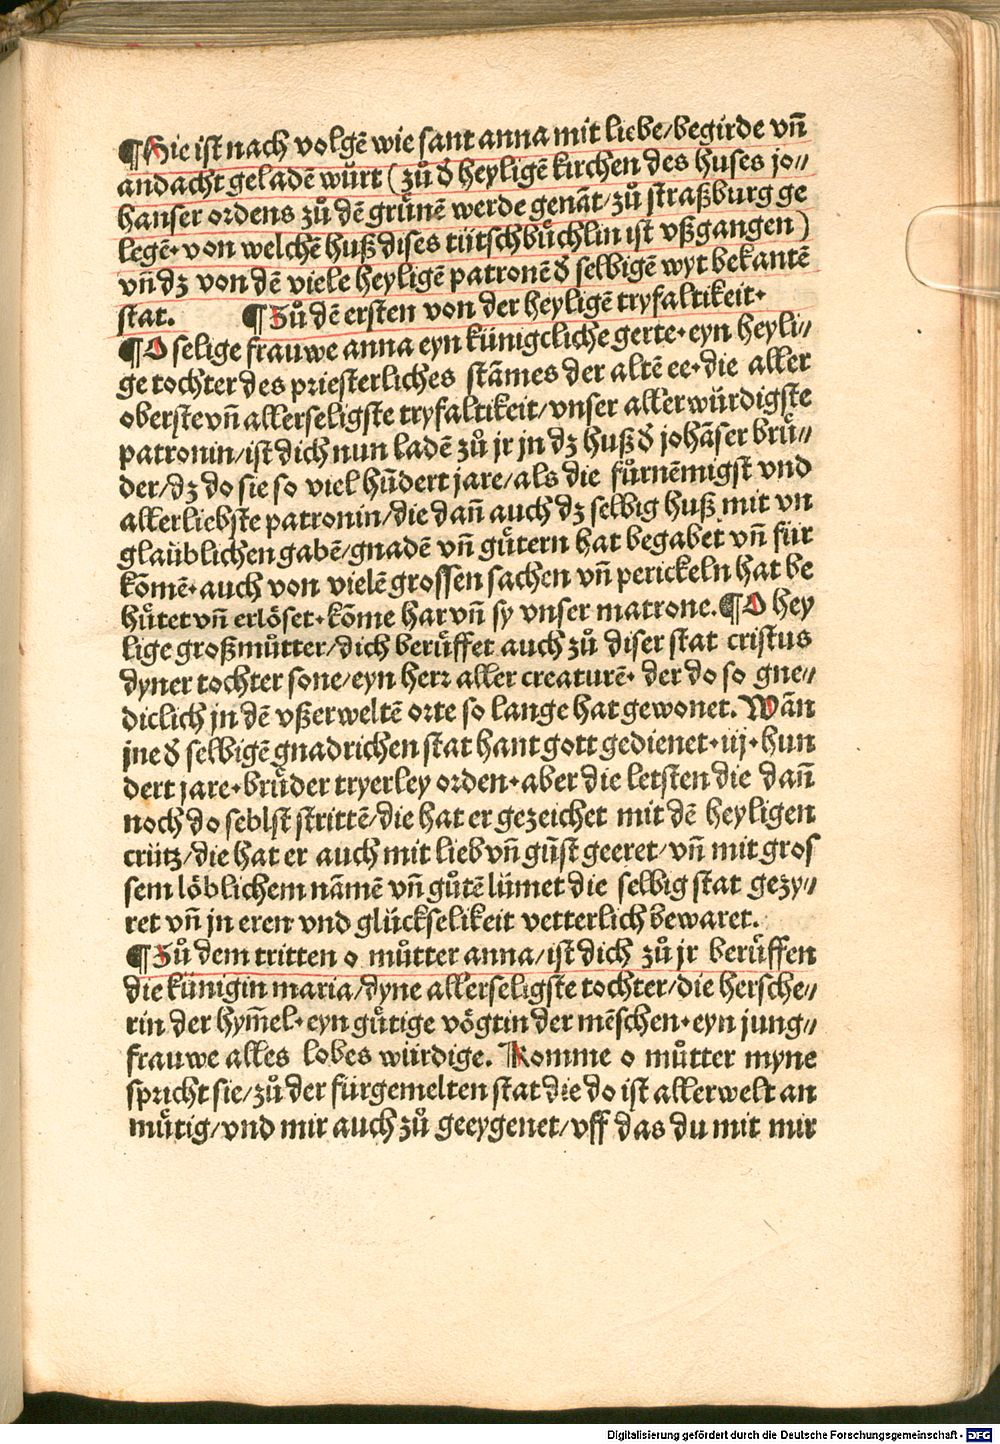 ¶Hie ist nach volgē wie sant anna mit liebe/begirde vn̄
andacht geladē würt (zů d̕ heyligē kirchen des huses jo⸗
hanser ordens zů dē grünē werde genāt/zů straßburg ge
legē·von welchē huß dises tütschbüchlin ist vßgangen)
vn̄ dz von dē viele heyligē patronē d̕ selbigē wyt bekantē
stat. ¶Zů dē ersten von der heyligē tryfaltikeit·
¶O selige frauwe anna eyn künigcliche gerte·eyn heyli⸗
ge tochter des priesterliches stāmes der altē ee·die aller
oberste vn̄ allerseligste tryfaltikeit/vnser aller würdigste
patronin/ist dich nun ladē zů jr jn dz huß d̕ johāser brů⸗
der/dz do sie so viel hūdert jare/als die fürnēmigst vnd
allerliebste patronin/die dan̄ auch dz selbig huß mit vn
glaüblichen gabē/gnadē vn̄ gütern hat begabet vn̄ für
kōmē·auch von vielē grossen sachen vn̄ perickeln hat be
hütet vn̄ erlöset·kōme har vn̄ sy vnser matrone.¶O hey
lige großmůtter/dich berüffet auch zů diser stat cristus
dyner tochter sone/eyn herr aller creaturē· der do so gne⸗
diclich jn dē vßerweltē orte so lange hat gewonet. Wān
jne d̕ selbigē gnadrichen stat hant gott gedienet·iij·hun
dert jare·brüder tryerley orden·aber die letsten die dan̄
noch do seblst strittē/die hat er gezeichet mit dē heyligen
crütz/die hat er auch mit lieb vn̄ gūst geeret/vn̄ mit gros
sem löblichem nāmē vn̄ gůtē lümet die selbig stat gezy⸗
ret vn̄ jn eren vnd glückselikeit vetterlich bewaret.
¶Zů dem tritten o můtter anna/ist dich zů jr berüffen
die künigin maria/dyne allerseligste tochter/die hersche⸗
rin der hym̄el·eyn gütige vögtin der mēschen·eyn jung⸗
frauwe alles lobes würdige. Komme o můtter myne
spricht sie/zů der fürgemelten stat die do ist aller welt an
mütig/vnd mir auch zů geeygenet/vff das du mit mir
Digitalisierung gefördert durch die Deutsche Forschungsgemeinschaft - DFG